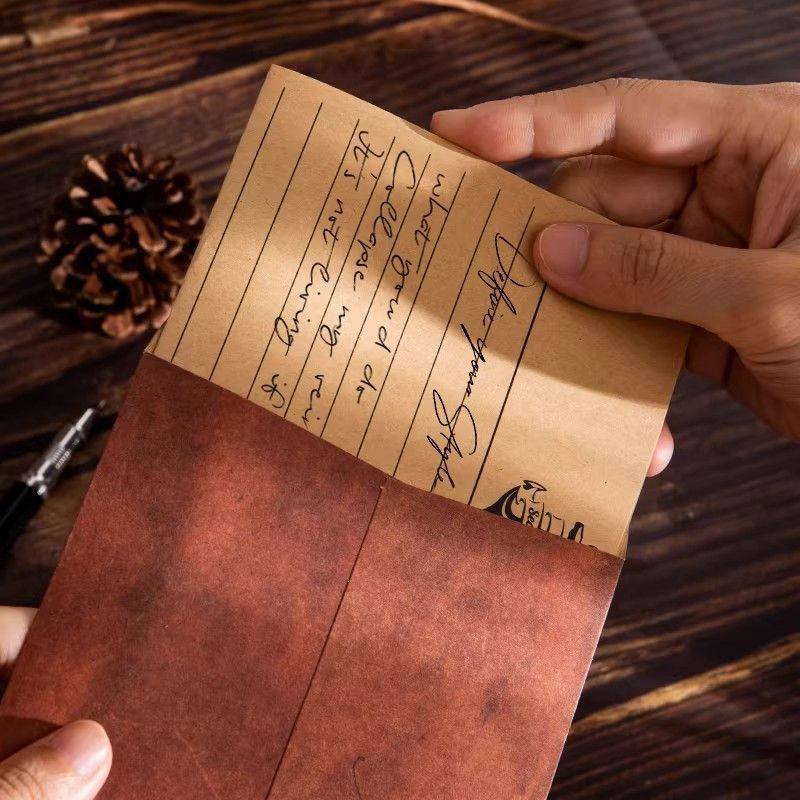 Define your Style
what you'd do
Collapse my vei
It's not living if
Sea